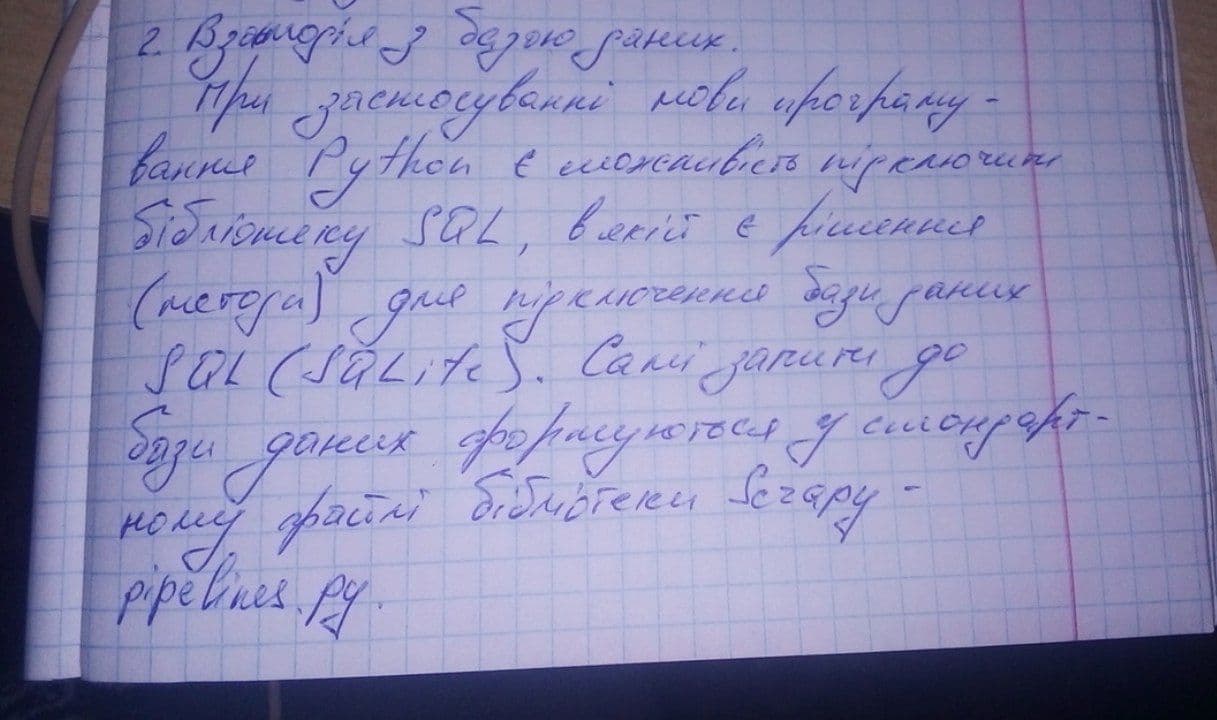 2. Взаємодія з базою даних.
При застосуванні мови програму-
вання Python є можливість підключити
бібліотеку SQL, в якій є рішення
(методи) для підключення бази даних
SQL (SQLite). Самі запити до
бази даних формуються у стандарт-
ному файлі бібліотеки Scrapy -
pipelines.py.